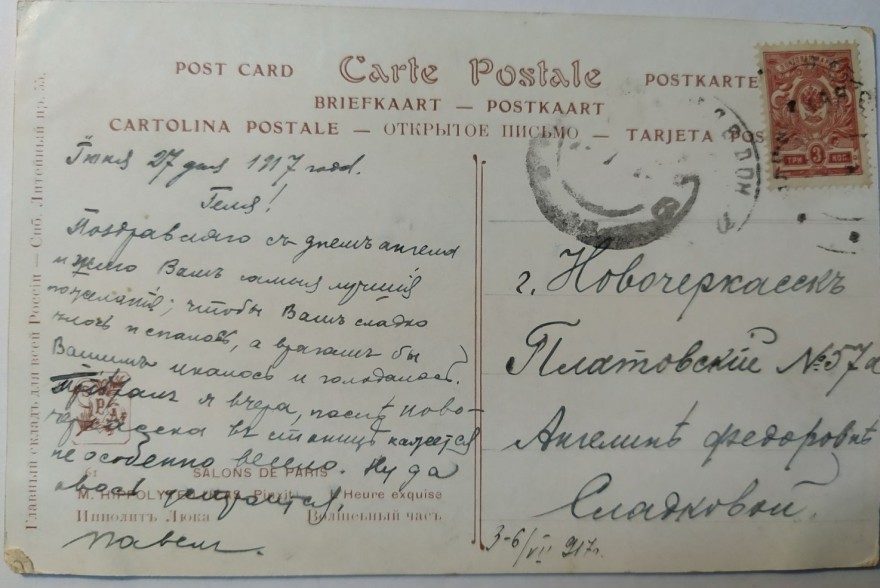 POST CARD Carte Postale POSTKARTE
BRIEFKAART — POSTKAART
CARTOLINA POSTALE — ОТКРЫТОЕ ПИСЬМО — TARJETA POS
ТРИ 3 КОП
Главный складъ для всей Россіи — Спб. Литейный пр. 55.
Іюня 27 дня 1917 года.
Геля!
Поздравляю съ днемъ ангела
и желаю Вамъ самыя лучшія
пожеланія; чтобы Вамъ сладко
елось и спалось, а врагамъ бы
Вашимъ икалось и голодалось.
я вчера, послѣ Ново-
черкасска въ станицѣ кажется
не особенно весело. Ну да
авось
Павелъ.
61 SALONS DE PARIS
M. HIPPOLYTE LUCAS Pinxit L'Heure exquise
Ипполитъ Люка Волшебный часъ
г. Новочеркасскъ
Платовскій №57а
Ангелинѣ Федоровнѣ
Сладковой.
3-6/VII 917г.